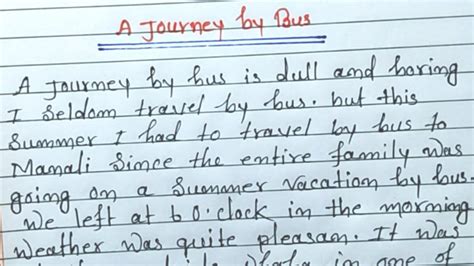 A Journey by Bus
A Journey by bus is dull and boring
I seldom travel by bus. but this
summer I had to travel by bus to
Manali since the entire family was
going on a summer vacation by bus.
We left at 6 O'clock in the morning
weather was quite pleasan. It was
in one of